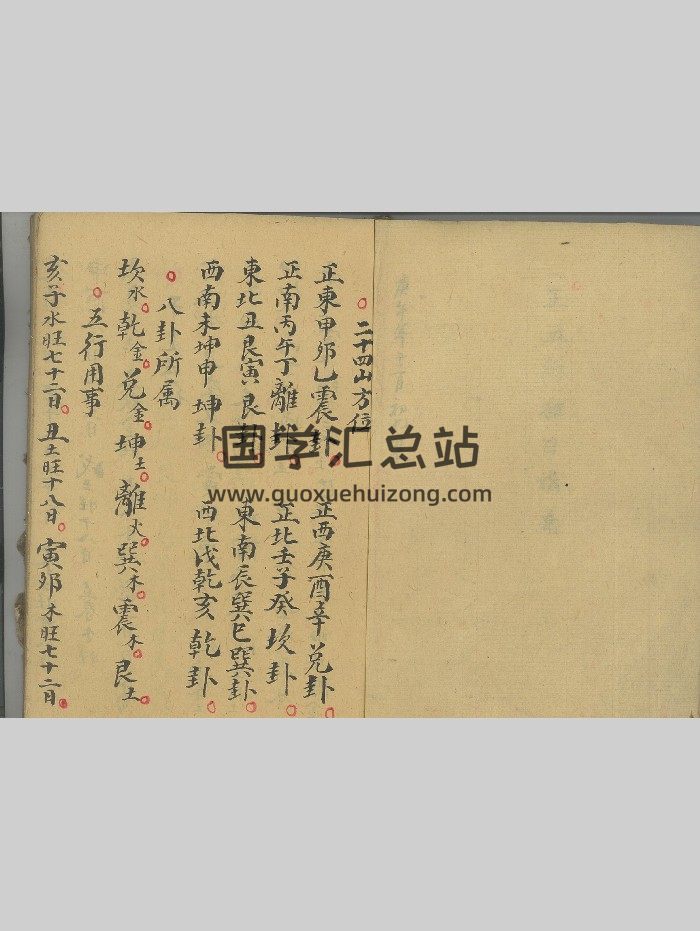 二十四山方位
正東甲卯乙震卦 正西庚酉辛兌卦
正南丙午丁離卦 正北壬子癸坎卦
東北丑艮寅艮卦 東南辰巽巳巽卦
西南未坤申坤卦 西北戌乾亥乾卦
八卦所属
坎水乾金兌金坤土離火巽木震木艮土
五行用事
亥子水旺七十二日丑土旺十八日寅卯木旺七十二日
国学汇总站
www.guoxuehuizong.com